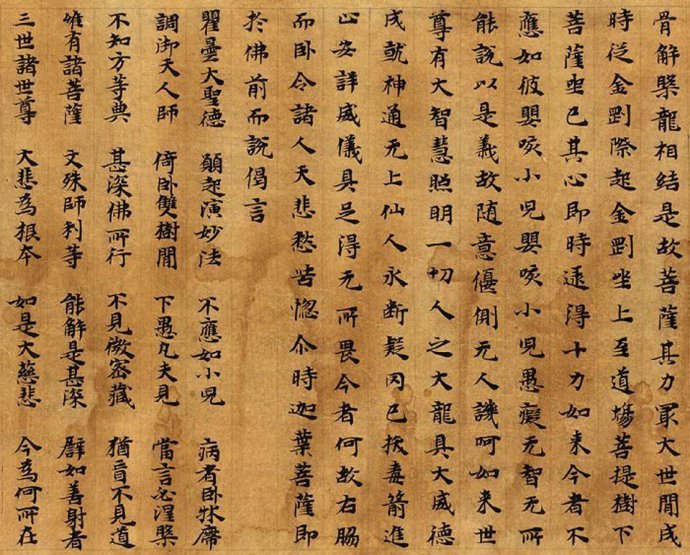 骨解槃龍相結是故菩薩其力㝡大世間成
時從金剛際起金剛坐上至道場菩提樹下
菩薩坐已其心即時逮得十力如來今者不
應如彼嬰咳小兒嬰咳小兒愚癡无智无所
能說以是義故随意偃側无人譏呵如來世
尊有大智慧照明一切人之大龍具大威德
成就神通无上仙人永断疑罔已拔毒箭進
止安詳威儀具足得无所畏今者何故右脇
而卧令諸人天悲愁苦惚尒時迦葉菩薩即
於佛前而說偈言
瞿曇大聖德 願起演妙法 不應如小兒 病者卧牀席
調御天人師 倚卧雙樹間 下愚凡夫見 當言必涅槃
不知方等典 甚深佛所行 不見微密藏 猶盲不見道
唯有諸菩薩 文殊師利等 能解是甚深 譬如善射者
三世諸世尊 大悲為根本 如是大慈悲 今為何所在